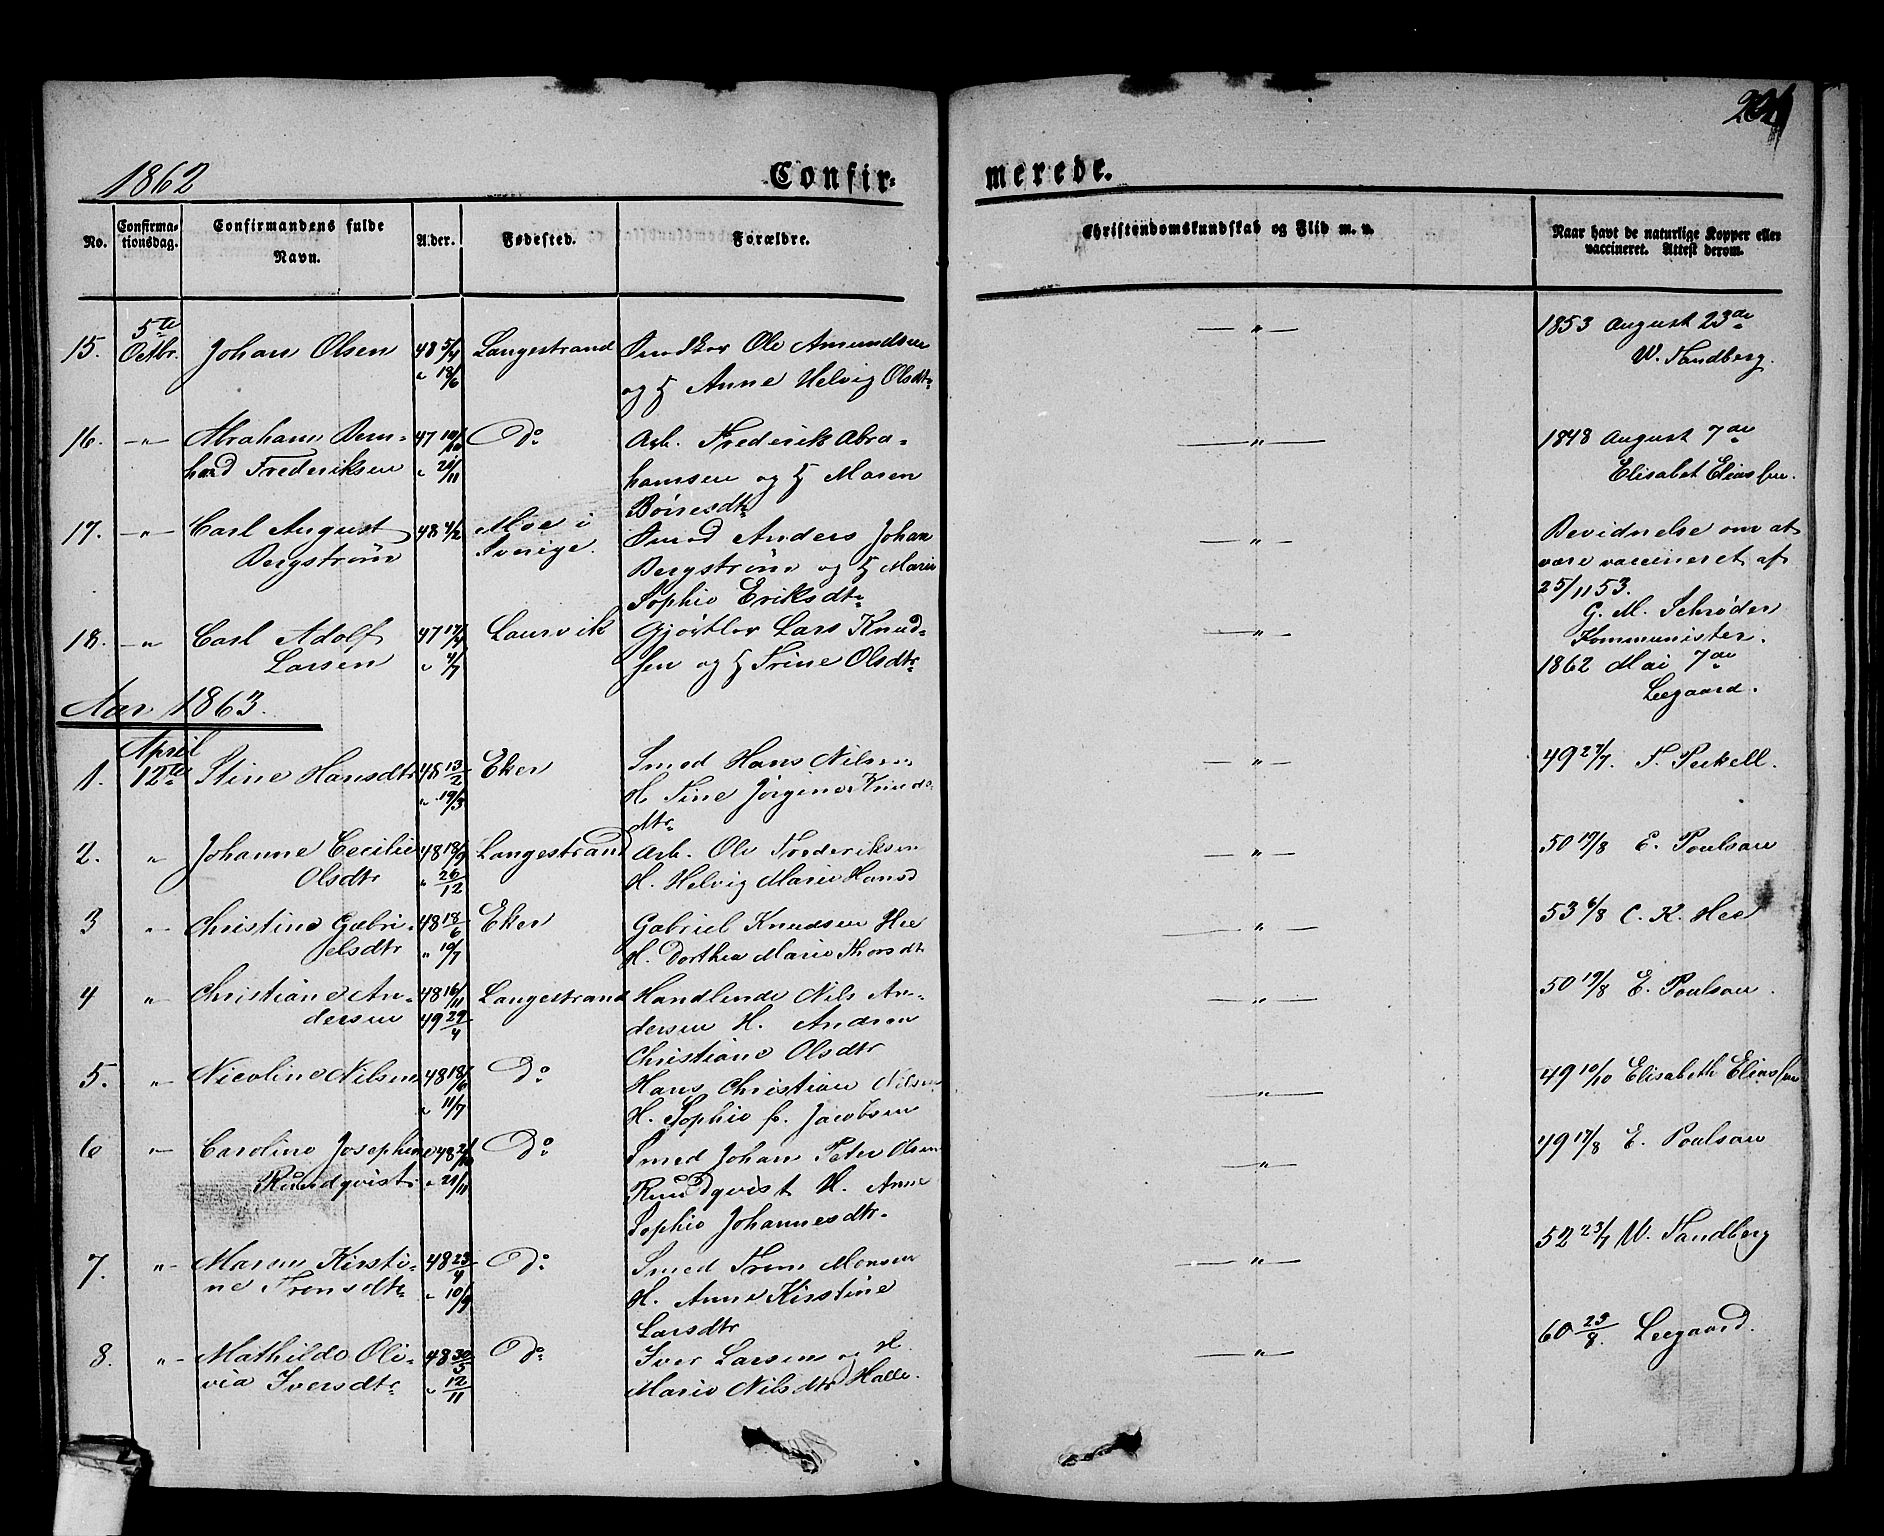 1862
Confir-
merede.
No.
Confirma-
tionsdag.
Confirmandens fulde
Navn.
Alder.
Fødested.
Forældre.
Christendomskundskab og Flid m. v.
Naar havt de naturlige Kopper eller
vaccineret. Attest derom.
15. 5te Octbr. Johan Olsen 48 5/4 " 18/6 Langestrand
Ole Amundsen
og H Anne Helvig Olsdtr
— " —
1853 August 23de
W. Sandberg.
16. — " — Abraham Bern-
hard Frederiksen
47 " 21/11
Do
Arb. Frederik Abra-
hamsen og H Maren
Boiresdtr
— " —
1848 August 7de
Elisabet Eliassen.
17. — " — Carl August
Bergstrøm
48 4/2
Moe i
Sverige.
Smed Anders Johan
Bergstrøm og H Marie
Sophie Eriksdtr
— " —
Bevidnelse om at
være vaccineret af
25/11 53.
G. M. Schrøder
Kommunister.
18. — " — Carl Adolf
Larsen
47 17/4
" 4/7
Laurvik
Gjørtler Lars Knud-
sen og H Trine Olsdtr
— " —
1862 Mai 7de
Leegaard.
Aar 1863.
1. April 12te Stine Hansdtr 48 13/2
" 19/3
Eker
Smed Hans Nilsen
H. Sine Jørgine Knuds-
dtr
— " —
49 27/7. T. Peckell.
2. " Johanne Cecilie
Olsdtr
48 18/9
" 26/12
Langestrand
Arb. Ole Frederiksen
H. Helvig Marie Hansd
— " —
50 19/8 E. Poulsen
3 " Christine Gabri-
elsdtr
48 18/6
" 19/7
Eker
Gabriel Knudsen Hee
H. Dorthea Marie Thorsdt
— " —
53 6/8 C. K. Hee
4 " Christiane An-
dersen
48 16/11
49 29/4
Langestrand
Handlende Nils An-
dersen H. Andrea
Christiane Olsdtr
— " —
50 19/8 E. Poulsen.
5. " Nicoline Nilsen 48 18/6
" 11/7
Do
Hans Christian Nilsen
H. Sophie f. Jacobsen
— " —
49 10/10 Elisabeth Eliassen
6 " Caroline Josephine
Rundqvist.
48
" 21/11
Do
Smed Johan Peter Olsen
Rundqvist H. Anne
Sophie Johannesdtr.
— " —
49 17/8 E. Poulsen
7. " Maren Kirsti-
ne Tronsdtr
48 23/4
" 10/9
Do
Smed Tron Monsen
H. Anne Kirstine
Larsdtr
— " —
52 23/7 W. Sandberg
8. " Mathilde Oli-
via Iversdtr
48 30/5
" 12/11
Do
Iver Larsen og H.
Marie Nilsdtr Halle.
— " —
60 23/8. Leegaard.